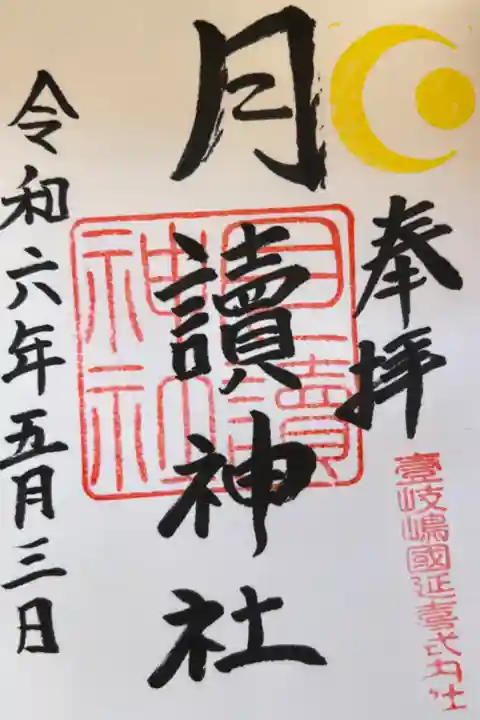 奉拝
壹岐嶋國延喜式内社
月讀神社
月讀
神社
令和六年五月三日